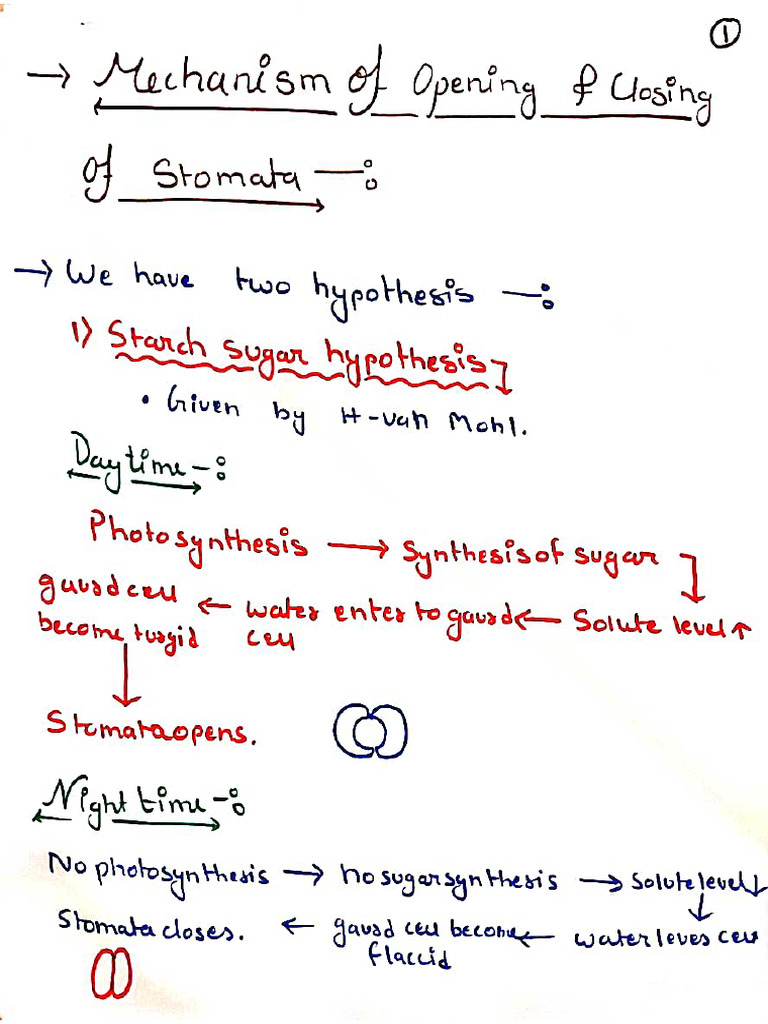 ①
→ Mechanism of Opening & Closing
of Stomata —:
→ We have two hypothesis —:
1) Starch sugar hypothesis
• Given by H-van Mohl.
Day time -:
Photosynthesis → Synthesis of sugar
gaurd cell ← water enter to gaurd ← Solute level ↑
become turgid cell
↓
Stomata opens.
Night time -:
No photosynthesis → no sugar synthesis → Solute level ↓
↓
Stomata closes. ← gaurd cell become ← water leves cell
flaccid